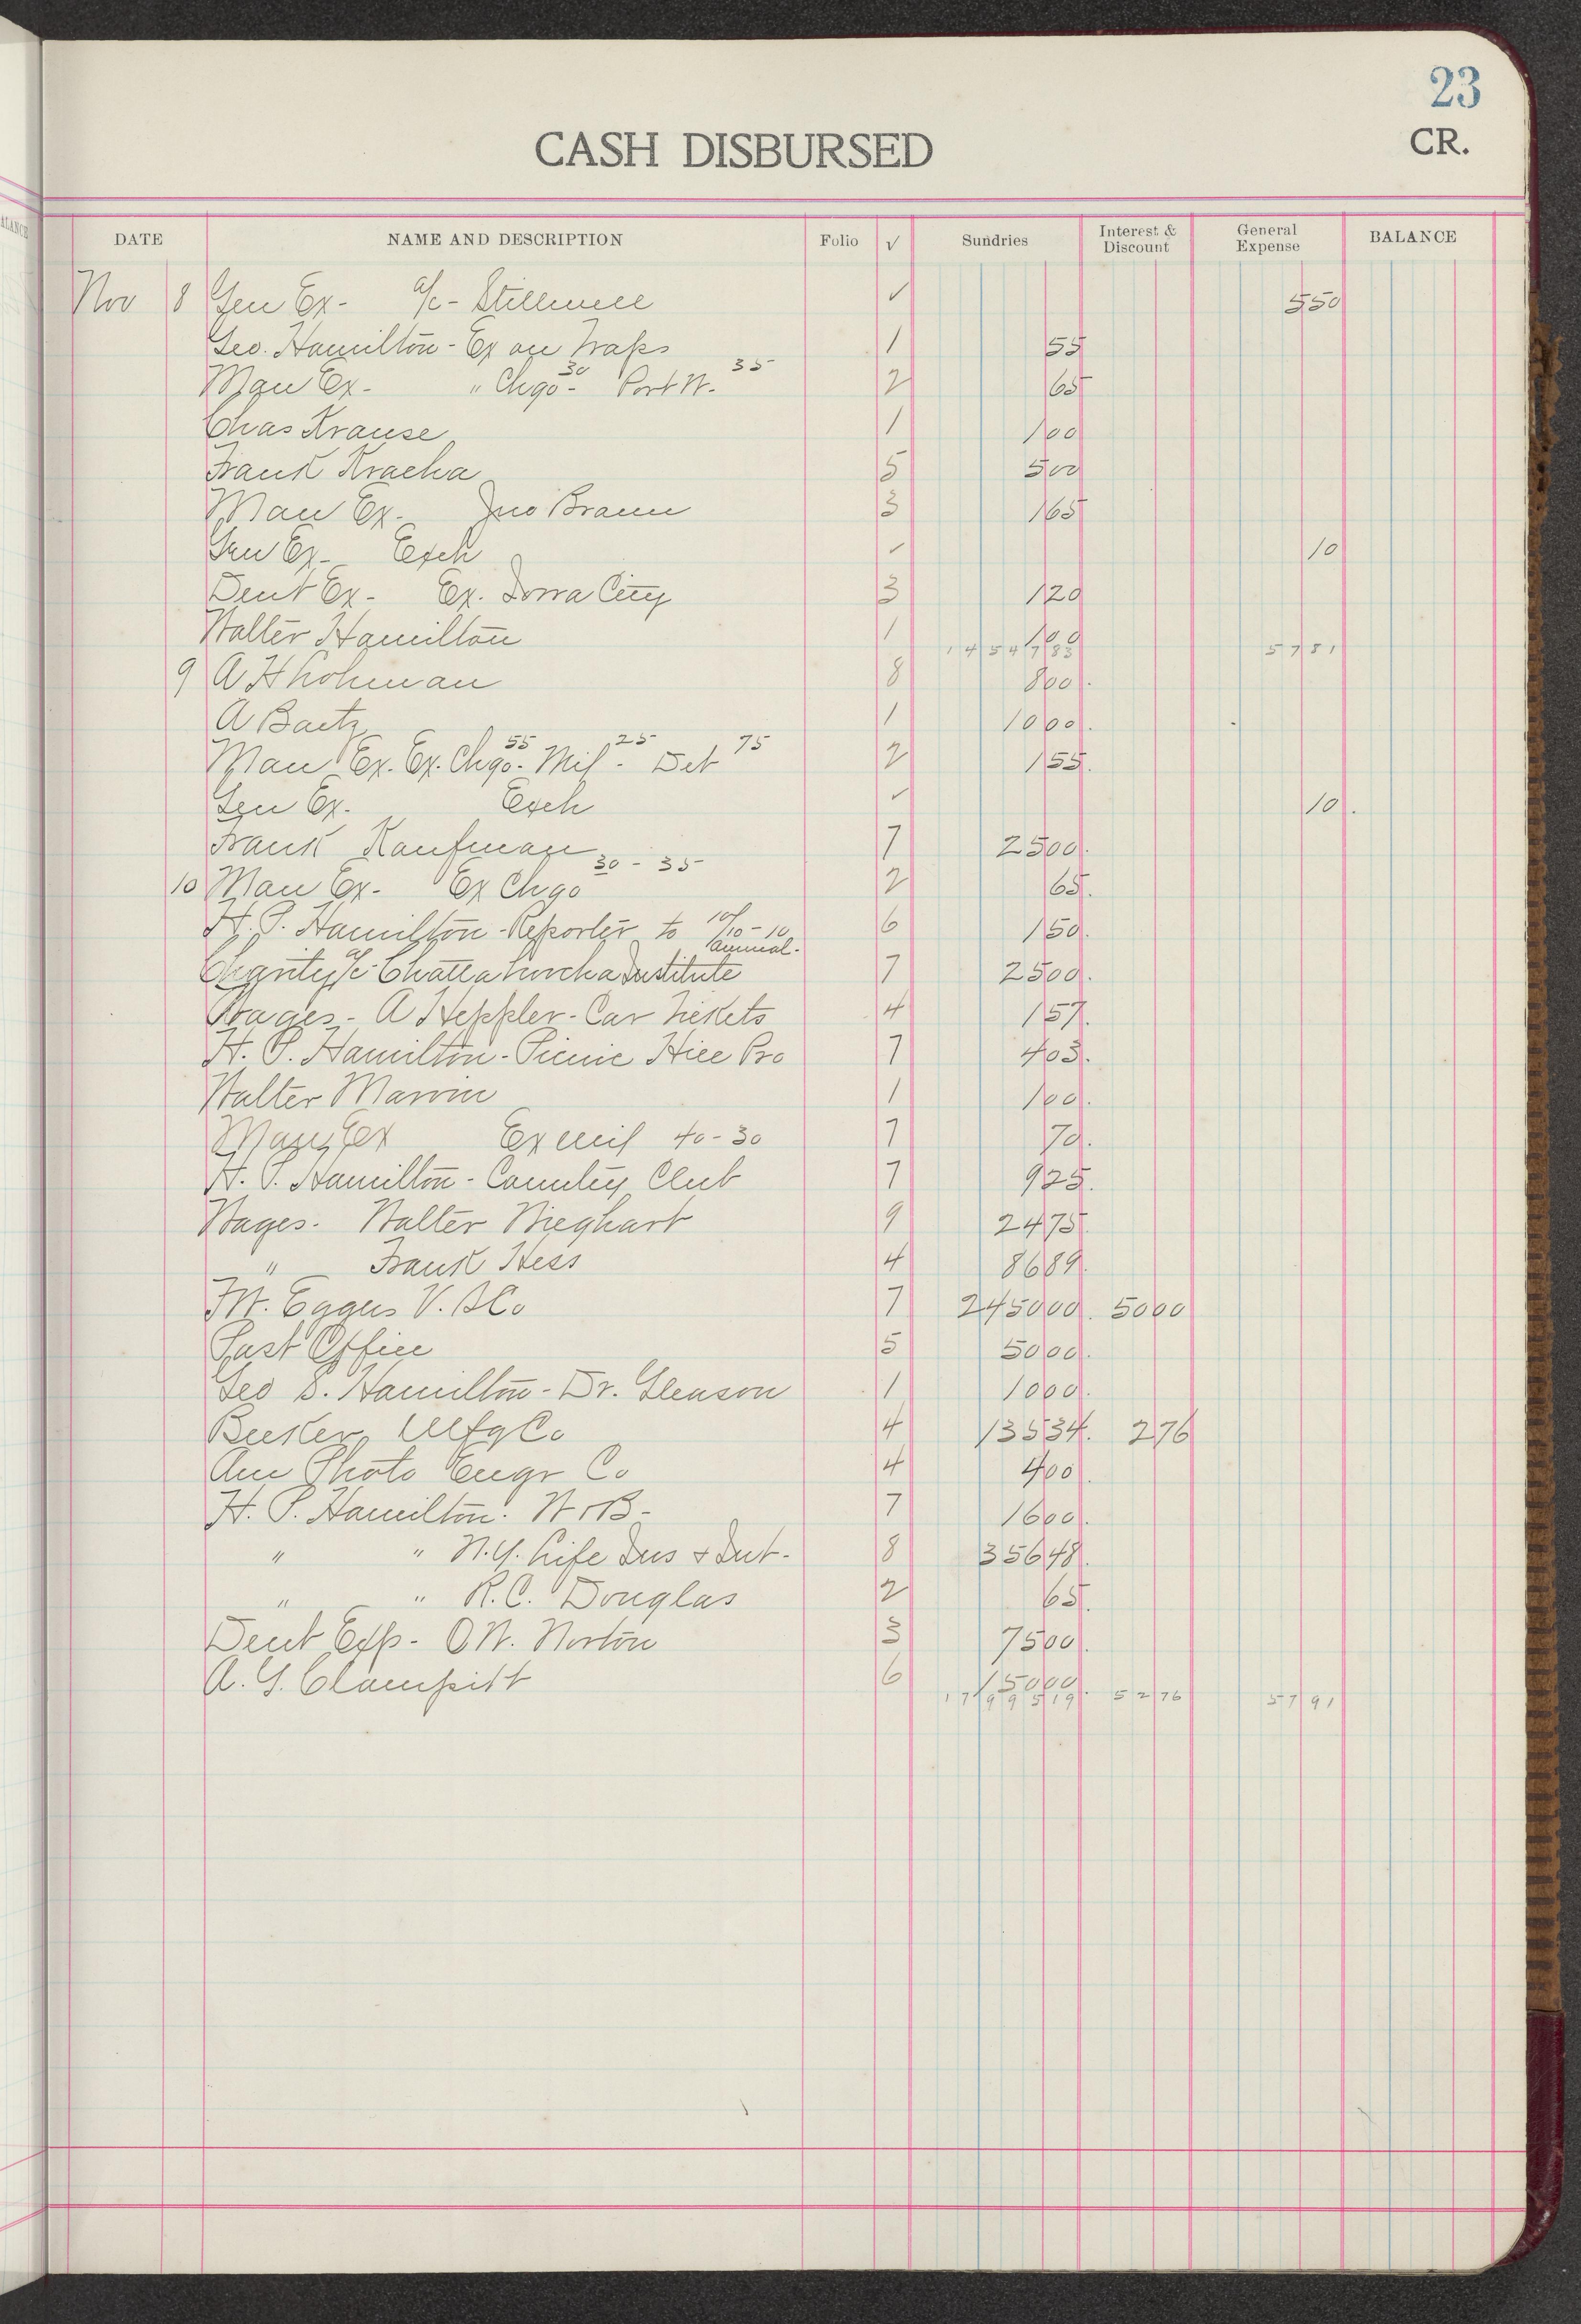 23
CASH DISBURSED CR.
DATE NAME AND DESCRIPTION Folio ✓ Sundries Interest & Discount General Expense BALANCE
Nov 8 Gen Ex- a/c- Stillwell ✓ 550
Geo. Hamilton- Ex on Traps 1 55
Man Ex- " Chgo- 30 Port W. 35 2 65
Chas Krause 1 100
Frank Kracha 5 500
Man Ex- Jno Braun 3 165
Gen Ex- Exch ✓ 10
Dent Ex- Ex. Iowa City 3 120
Walter Hamilton 1 100
1454783 5781
9 A H Lohman 8 800
A Bartz 1 1000
Man Ex. Ex. Chgo- 55 Mil- 25 Det 75 2 155
Gen Ex. Exch ✓ 10
Frank Kaufman 7 2500
10 Man Ex- Ex Chgo 30 - 35 2 65
H. P. Hamilton - Reporter to 10/10-10 6 150
Charity a/c- Institute annual- 7 2500
Wages - A Heppler - Car Tickets 4 157
H. P. Hamilton - Picnic Hice Pro 7 403
Walter Marvin 1 100
Man Ex Ex Mil 40-30 7 70
H. P. Hamilton - Country Club 7 925
Wages. Walter Wieghart 9 2475
" Frank Hess 4 8689
F.W. Eggers V. & Co 7 245000 5000
Post Office 5 5000
Geo S. Hamilton - Dr. Gleason 1 1000
Becker Mfg Co 4 13534 276
Am Photo Engr Co 4 400
H. P. Hamilton. W B- 7 1600
" " N.Y. Life Ins & Int- 8 35648
" " R.C. Douglas 2 65
Dent Exp- O W. Norton 3 7500
A. G. Clampitt 6 15000
1799519 5276 5791